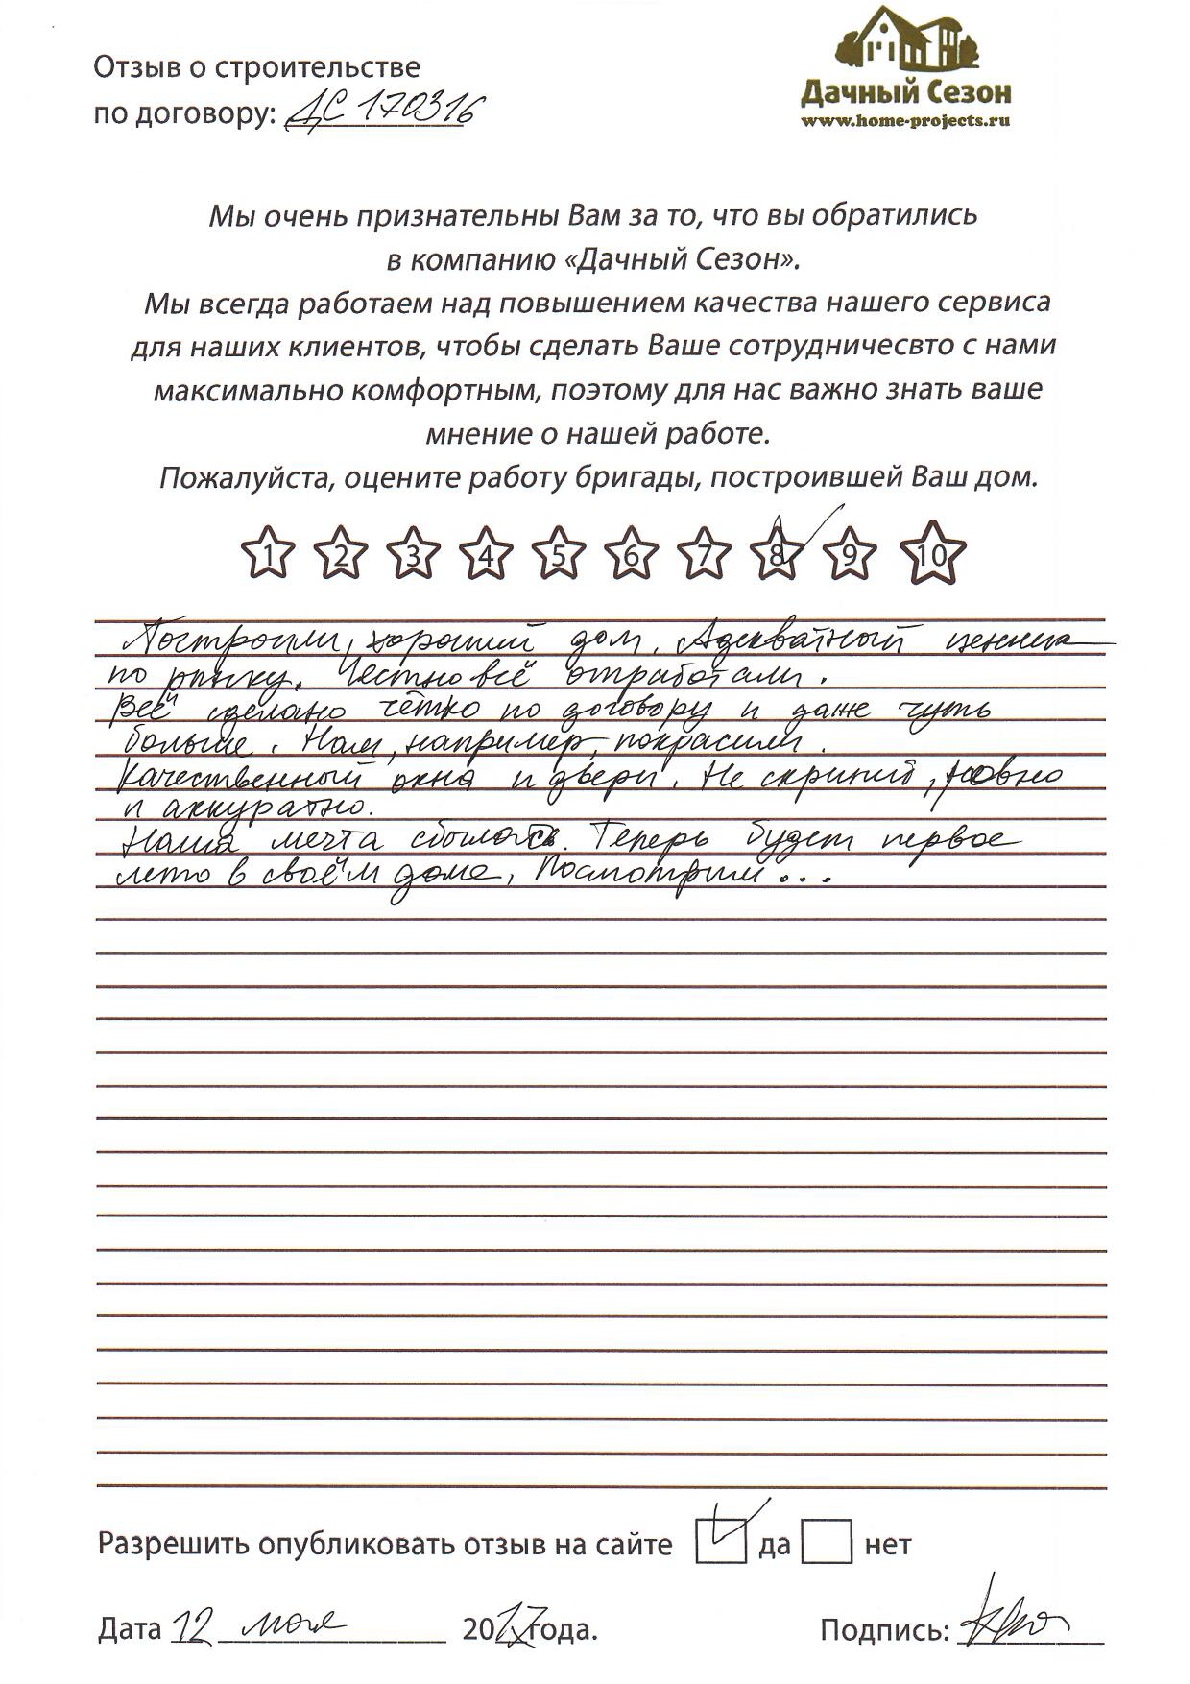 Отзыв о строительстве
по договору: ДС 170316
Дачный Сезон
www.home-projects.ru
Мы очень признательны Вам за то, что вы обратились
в компанию «Дачный Сезон».
Мы всегда работаем над повышением качества нашего сервиса
для наших клиентов, чтобы сделать Ваше сотрудничесвто с нами
максимально комфортным, поэтому для нас важно знать ваше
мнение о нашей работе.
Пожалуйста, оцените работу бригады, построившей Ваш дом.
1 2 3 4 5 6 7 8 9 10
Построили, хороший дом. Адекватный ценник
по рынку. Честно всё отработали.
Всё сделано чётко по договору и даже чуть
больше. Нам, например, покрасили.
Качественный окна и двери. Не скрипят, ровно
и аккуратно.
Наша мечта сбылась. Теперь будет первое
лето в своём доме, Посмотрим...
Разрешить опубликовать отзыв на сайте да нет
Дата 12 мая 2017года. Подпись: